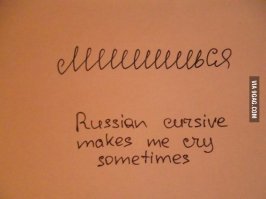 Лишишься
Russian cursive
makes me cry
sometimes
VIA 9GAG.COM